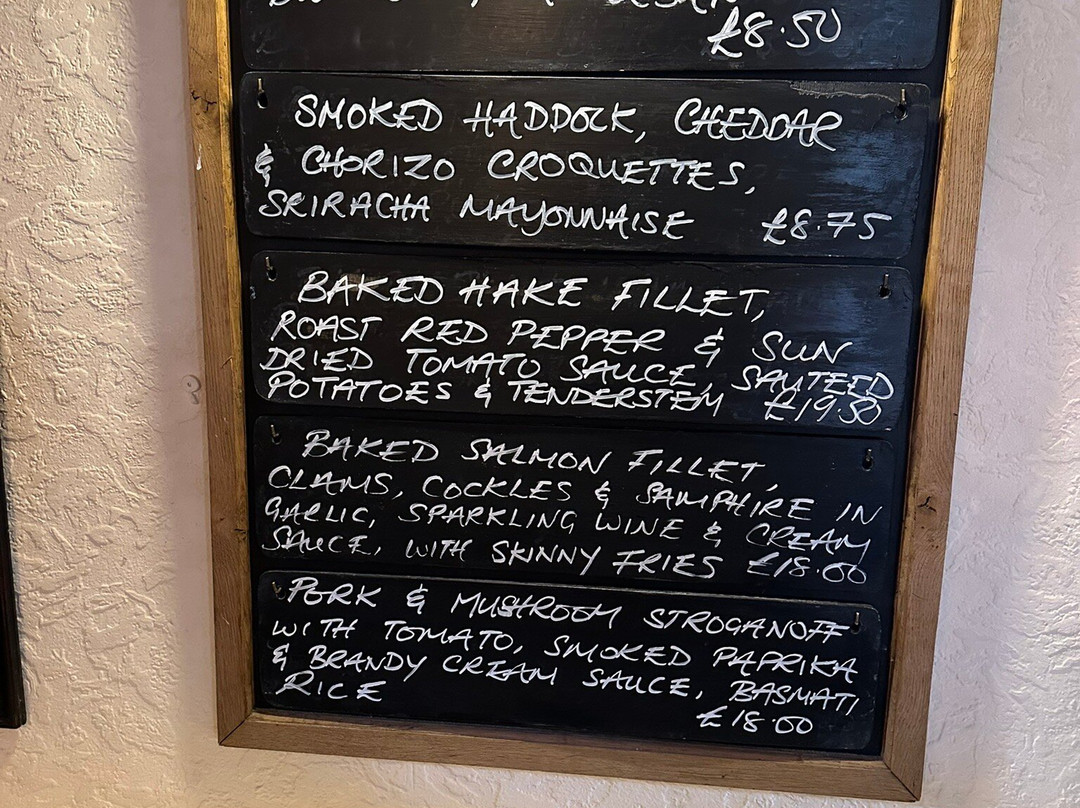 £8.50
SMOKED HADDOCK, CHEDDAR
& CHORIZO CROQUETTES,
SRIRACHA MAYONNAISE £8.75
BAKED HAKE FILLET,
ROAST RED PEPPER & SUN
DRIED TOMATO SAUCE, SAUTEED
POTATOES & TENDERSTEM £19.50
BAKED SALMON FILLET,
CLAMS, COCKLES & SAMPHIRE IN
GARLIC, SPARKLING WINE & CREAM
SAUCE, WITH SKINNY FRIES £18.00
PORK & MUSHROOM STROGANOFF
WITH TOMATO, SMOKED PAPRIKA
& BRANDY CREAM SAUCE, BASMATI
RICE
£18.00